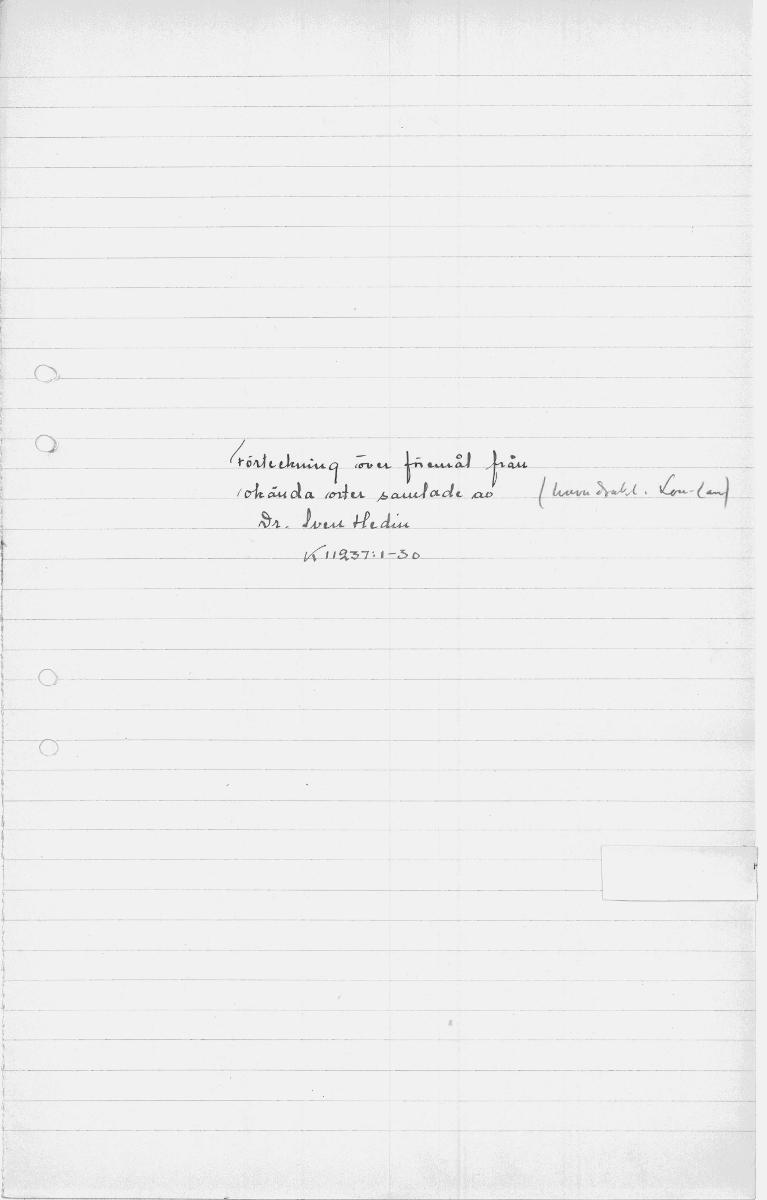 Förteckning över föremål från
okända orter samlade av (huvudsakl. Lou-lan)
Dr. Sven Hedin
K 11237:1-30